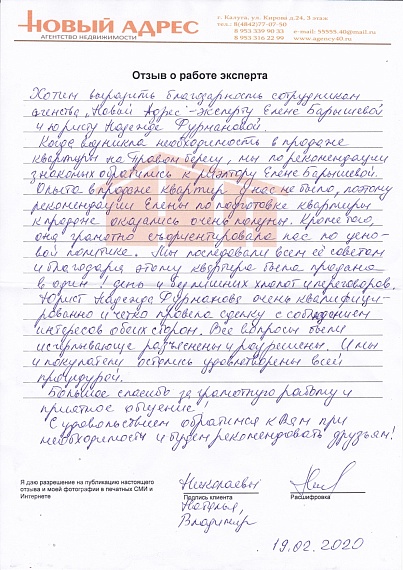 НОВЫЙ АДРЕС
АГЕНТСТВО НЕДВИЖИМОСТИ
г. Калуга, ул. Кирова д. 4, 3 этаж
тел.: 8(4842)77-07-50
8 953 339 90 33
8 953 316 22 99
e-mail: 55555.40@mail.ru
www.agency40.ru
Отзыв о работе эксперта
Хотим выразить благодарность сотрудникам
агенства „Новый Адрес" - эксперту Елене Барышевой
и юристу Надежде Фурмановой.
Когда возникла необходимость в продаже
квартиры на Правом берегу, мы по рекомендации
знакомых обратились к риэлтору Елене Барышевой.
Опыта в продаже квартир у нас не было, поэтому
рекомендации Елены по подготовке квартиры
к продаже оказались очень нужны. Кроме того,
она грамотно сориентировала нас по цено-
вой политике. Мы последовали всем её советам
и благодаря этому квартира была продана
в один! день и без лишних хлопот и переговоров.
Юрист Надежда Фурманова очень квалифици-
рованно и чётко провела сделку с соблюдением
интересов обеих сторон. Все вопросы были
исчерпывающе разъяснены и разрешены. И мы
и покупатели остались удовлетворены всей
процедурой.
Большое спасибо за грамотную работу и
приятное общение!
С удовольствием обратимся к Вам при
необходимости и будем рекомендовать друзьям!
Я даю разрешение на публикацию настоящего
отзыва и моей фотографии в печатных СМИ и
Интернете
Николаевы
Подпись клиента
Расшифровка
Наталья,
Владимир
19.02.2020